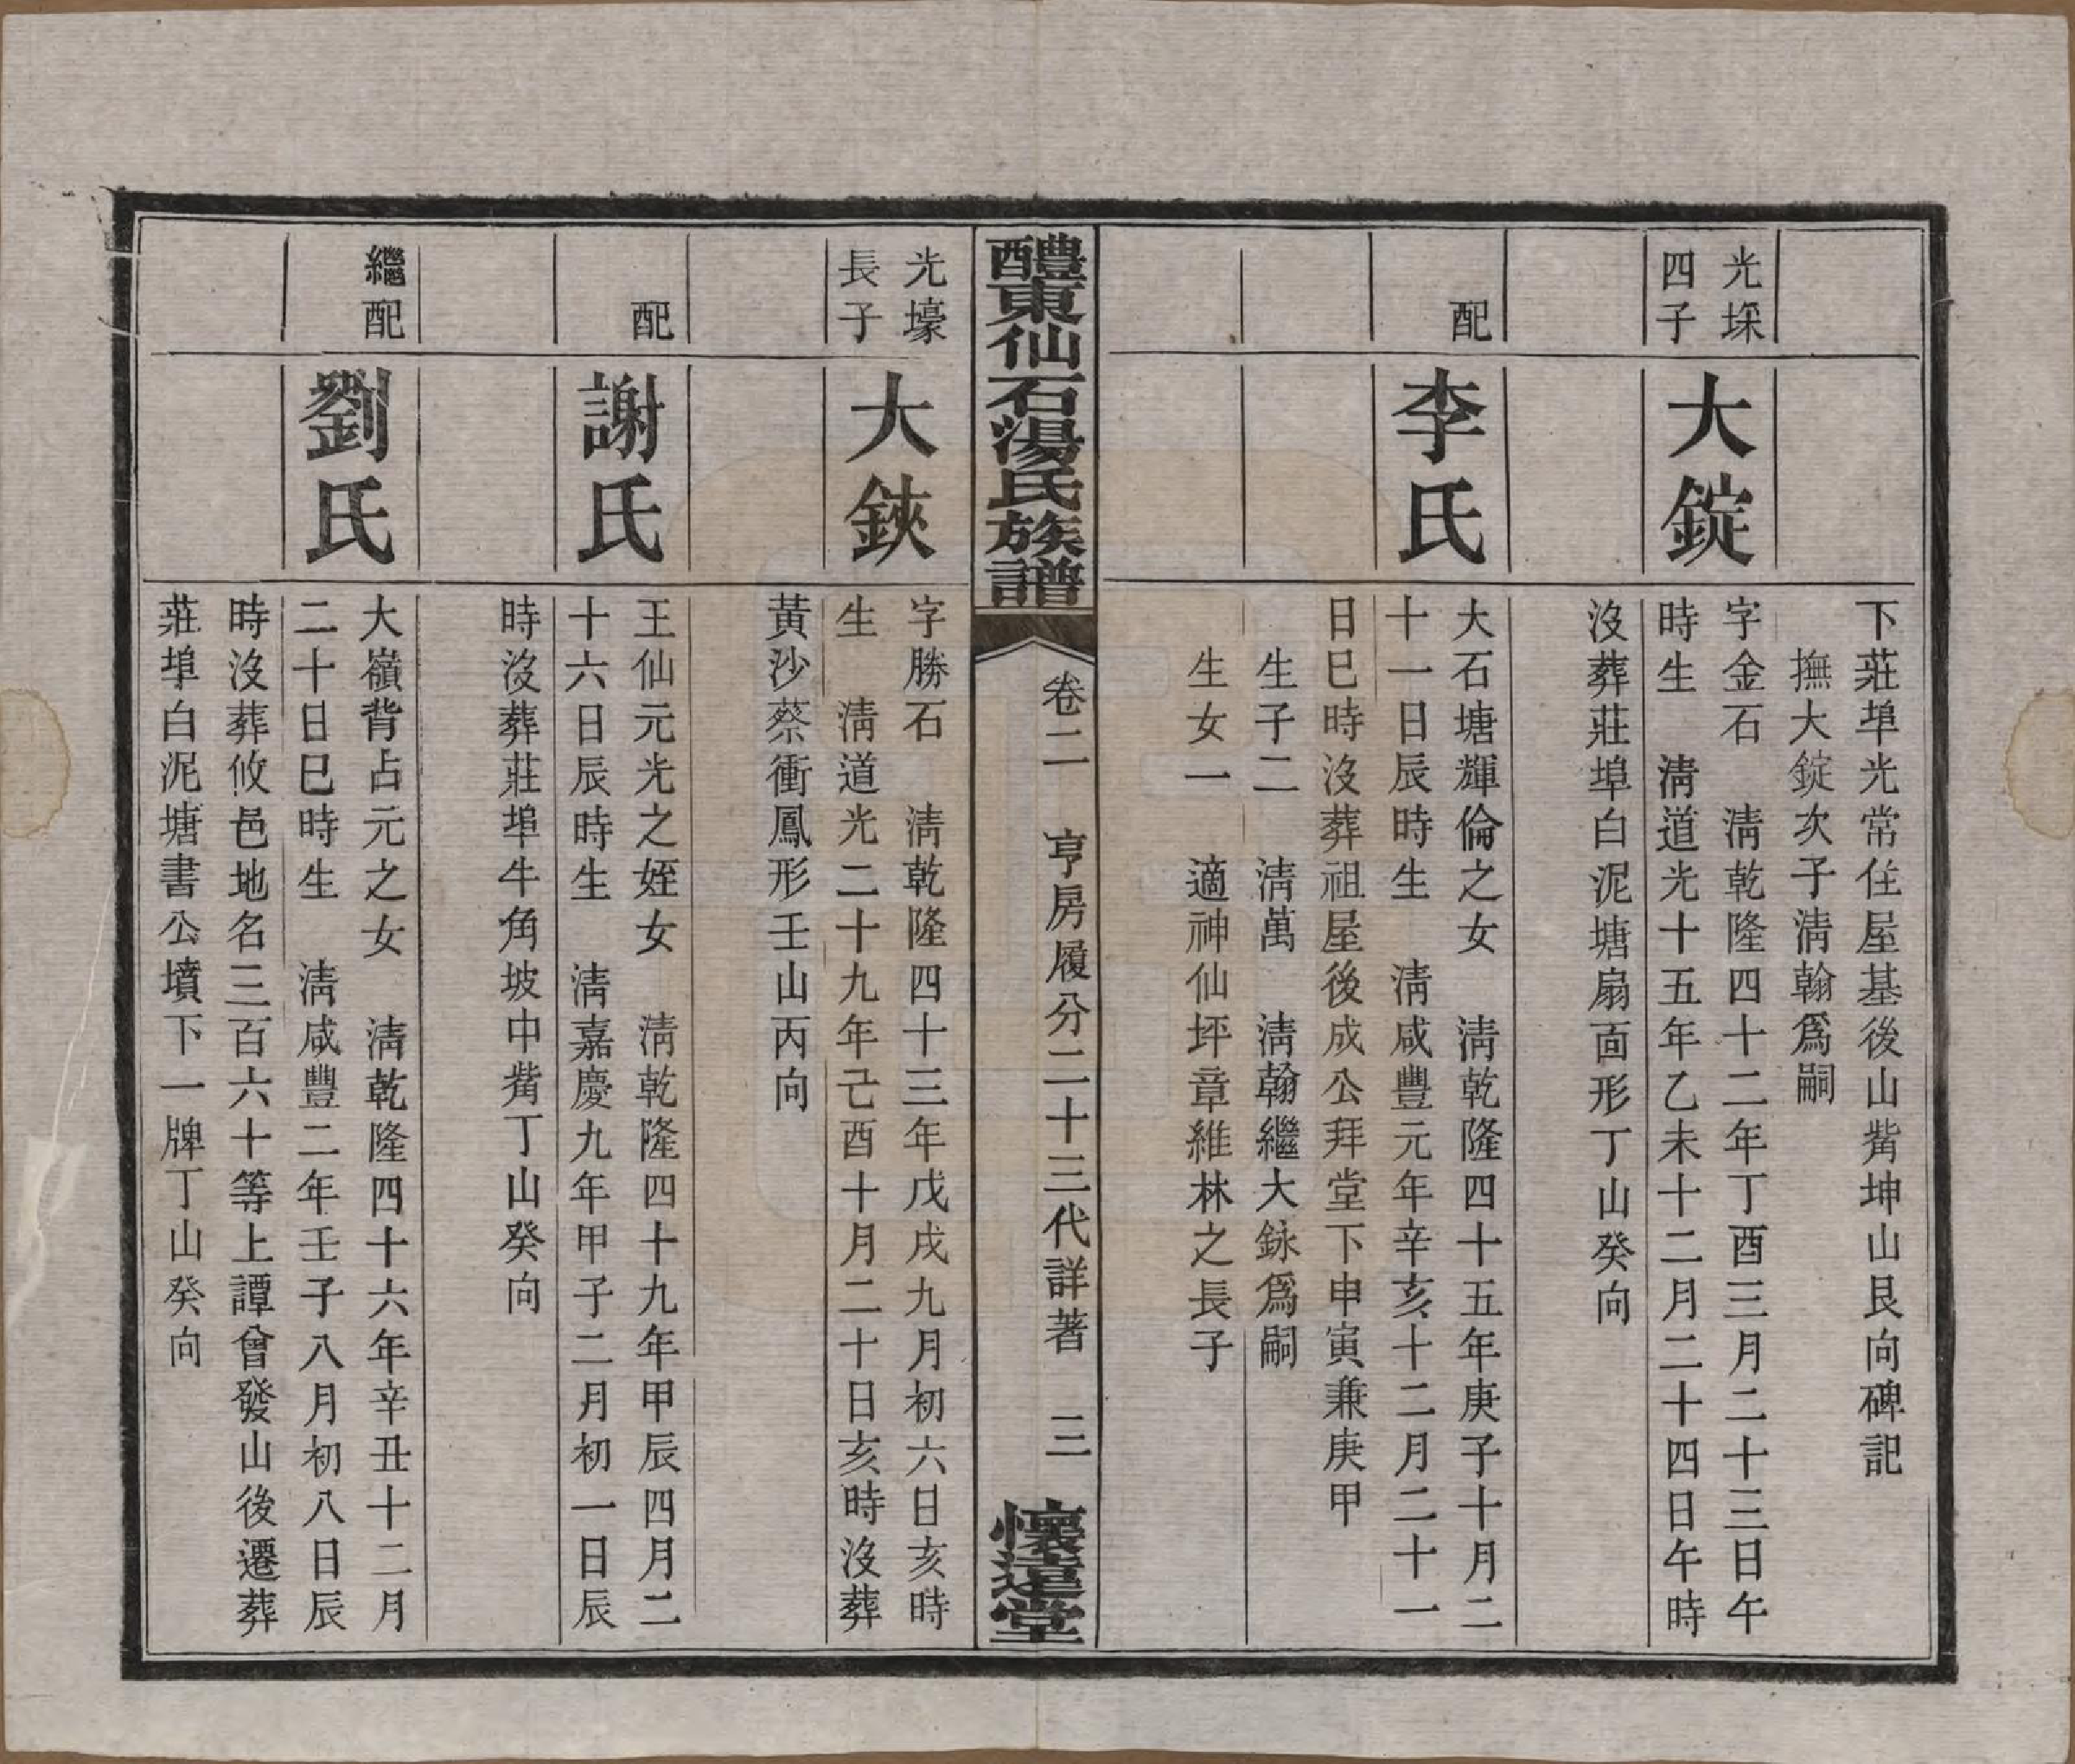 下莊埠光常住屋基後山觜坤山艮向碑記
撫大錠次子淸翰爲嗣
光埰
四子
大錠
字金石　淸乾隆四十二年丁酉三月二十三日午
時生　淸道光十五年乙未十二月二十四日午時
沒葬莊埠白泥塘扇面形丁山癸向
配
李氏
大石塘輝倫之女　淸乾隆四十五年庚子十月二
十一日辰時生　淸咸豐元年辛亥十二月二十一
日巳時沒葬祖屋後成公拜堂下申寅兼庚甲
生子二　淸萬　淸翰繼大錸爲嗣
生女一　適神仙坪章維林之長子
醴東仙石湯氏族譜
卷二　亨房履分二十三代詳著　三
懷遠堂
光壕
長子
大鋏
字勝石　淸乾隆四十三年戊戌九月初六日亥時
生　淸道光二十九年己酉十月二十日亥時沒葬
黃沙蔡衝鳳形壬山丙向
配
謝氏
王仙元光之姪女　淸乾隆四十九年甲辰四月二
十六日辰時生　淸嘉慶九年甲子二月初一日辰
時沒葬莊埠牛角坡中觜丁山癸向
繼配
劉氏
大嶺背占元之女　淸乾隆四十六年辛丑十二月
二十日巳時生　淸咸豐二年壬子八月初八日辰
時沒葬攸邑地名三百六十等上譚曾發山後遷葬
莊埠白泥塘書公墳下一牌丁山癸向